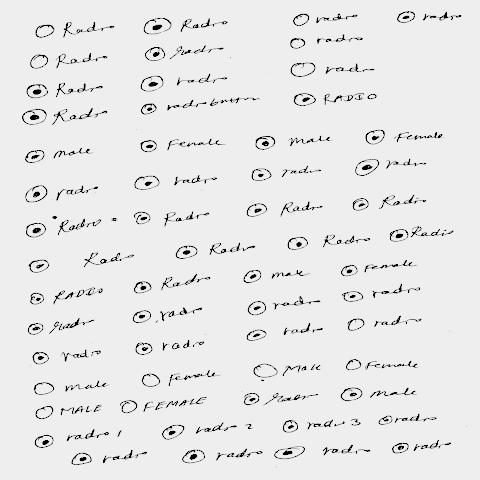 Radio Radio radio radio
Radio Radio radio
Radio radio radio
Radio radio button RADIO
male Female male Female
radio radio radio radio
Radio Radio Radio Radio
Radio Radio Radio Radio
RADIO Radio male Female
Radio radio radio radio
radio radio radio radio
male Female Male Female
MALE FEMALE male
radio 1 radio 2 radio 3 radio
radio radio radio radio